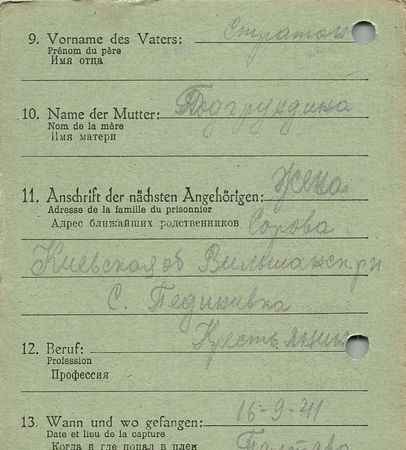 9. Vorname des Vaters: Стратон
Prénom du père
Имя отца
10. Name der Mutter: Подгрундина
Nom de la mère
Имя матери
11. Anschrift der nächsten Angehörigen: жена
Adresse de la famille du prisonnier
Адрес ближайших родственников Сорова
Киевская об Вильшанск. рн
С. Пединовка
12. Beruf: Крестьянин
Profession
Профессия
13. Wann und wo gefangen: 16-9-41
Date et lieu de la capture
Когда и где попал в плен Полтава